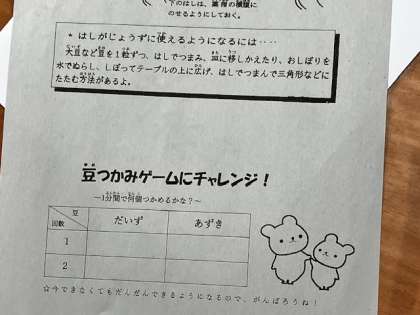 下のはしは、薬指の横腹に
のせるようにしておく。
* はしがじょうずに使えるようになるには‥‥
大豆など豆を1粒ずつ、はしでつまみ、皿に移しかえたり、おしぼりを
水でぬらし、しぼってテーブルの上に広げ、はしでつまんで三角形などに
たたむ方法があるよ。
豆つかみゲームにチャレンジ!
～1分間で何個つかめるかな?～
豆 だいず あずき
回数
1
2
☆今できなくてもだんだんできるようになるので、がんばろうね!